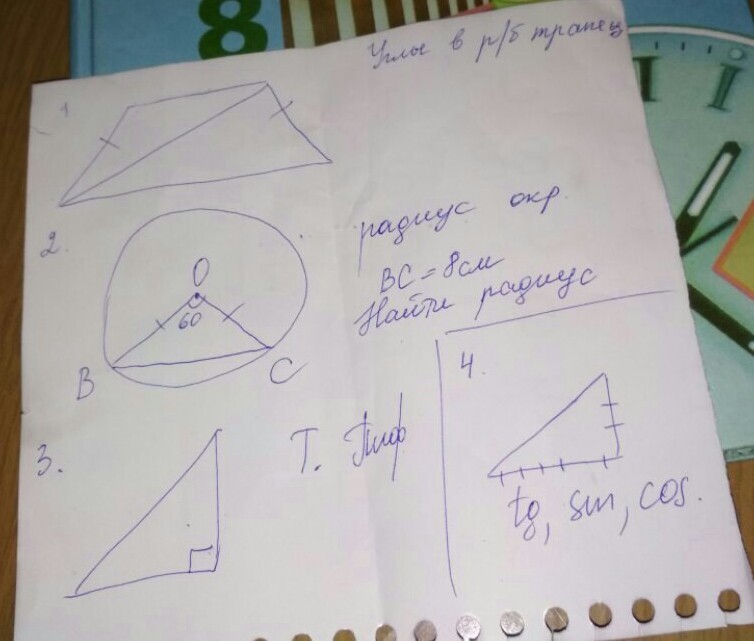 8
Углы в р/б трапец
1
2.
радиус окр.
О
BC = 8см
60
Найти радиус
B
C
4.
3.
Т. Пиф
tg, sin, cos.